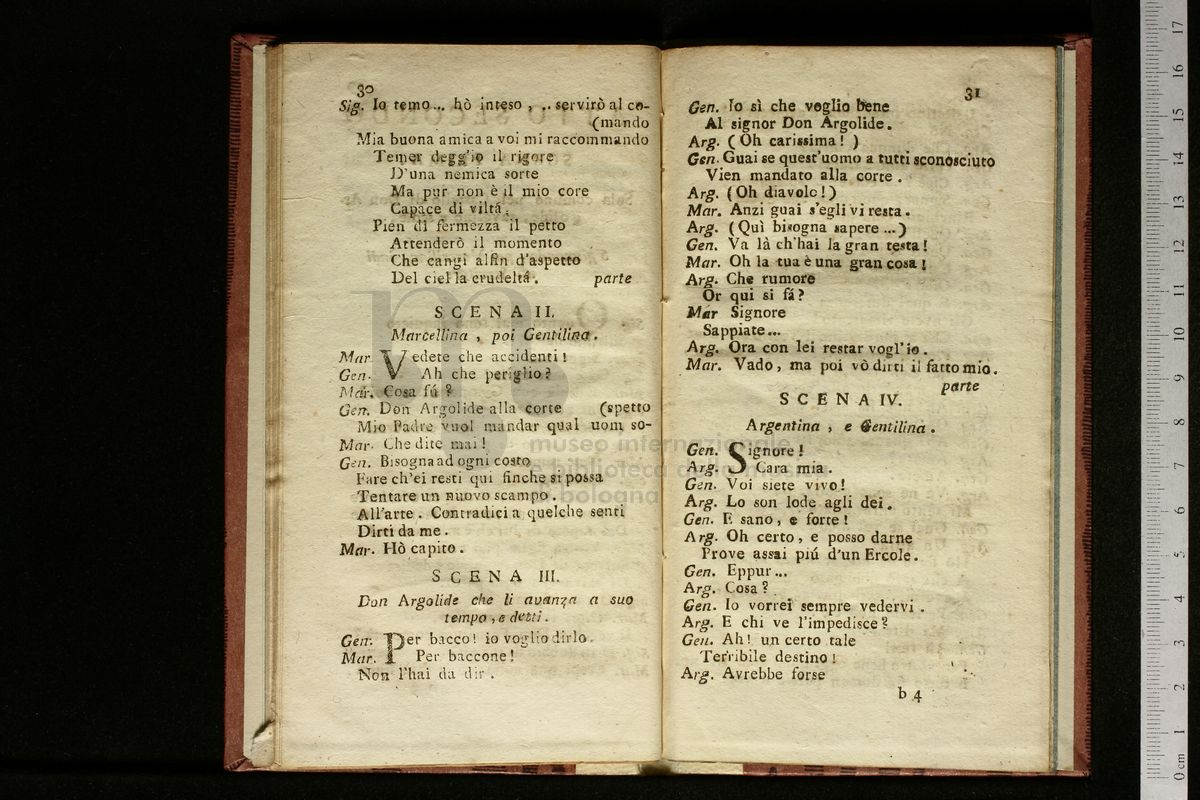 30
Sig. Io temo... hò inteso, .. servirò al co-
(mando
Mia buona amica a voi mi raccommando
Temer degg'io il rigore
D'una nemica sorte
Ma pur non è il mio core
Capace di viltá.
Pien di fermezza il petto
Attenderò il momento
Che cangi alfin d'aspetto
Del ciel la crudeltá. parte
SCENA II.
Marcellina, poi Gentilina.
Mar. Vedete che accidenti!
Gen. Ah che periglio?
Mar. Cosa fú?
Gen. Don Argolide alla corte (spetto
Mio Padre vuol mandar qual uom so-
Mar. Che dite mai!
Gen. Bisogna ad ogni costo
Fare ch'ei resti qui finche si possa
Tentare un nuovo scampo.
All'arte. Contradici a quelche senti
Dirti da me.
Mar. Hò capito.
SCENA III.
Don Argolide che li avanza a suo
tempo, e detti.
Gen. Per bacco! io voglio dirlo.
Mar. Per baccone!
Non l'hai da dir.
31
Gen. Io sì che voglio bene
Al signor Don Argolide.
Arg. (Oh carissima!)
Gen. Guai se quest'uomo a tutti sconosciuto
Vien mandato alla corte.
Arg. (Oh diavolo!)
Mar. Anzi guai s'egli vi resta.
Arg. (Quì bisogna sapere ...)
Gen. Va là ch'hai la gran testa!
Mar. Oh la tua è una gran cosa!
Arg. Che rumore
Or qui si fá?
Mar Signore
Sappiate...
Arg. Ora con lei restar vogl'io.
Mar. Vado, ma poi vò dirti il fatto mio.
parte
SCENA IV.
Argentina, e Gentilina.
Gen. Signore!
Arg. Cara mia.
Gen. Voi siete vivo!
Arg. Lo son lode agli dei.
Gen. E sano, e forte!
Arg. Oh certo, e posso darne
Prove assai piú d'un Ercole.
Gen. Eppur...
Arg. Cosa?
Gen. Io vorrei sempre vedervi.
Arg. E chi ve l'impedisce?
Gen. Ah! un certo tale
Terribile destino!
Arg. Avrebbe forse
b 4
museo internazionale
e biblioteca della musica
bologna
0 cm 1 2 3 4 5 6 7 8 9 10 11 12 13 14 15 16 17